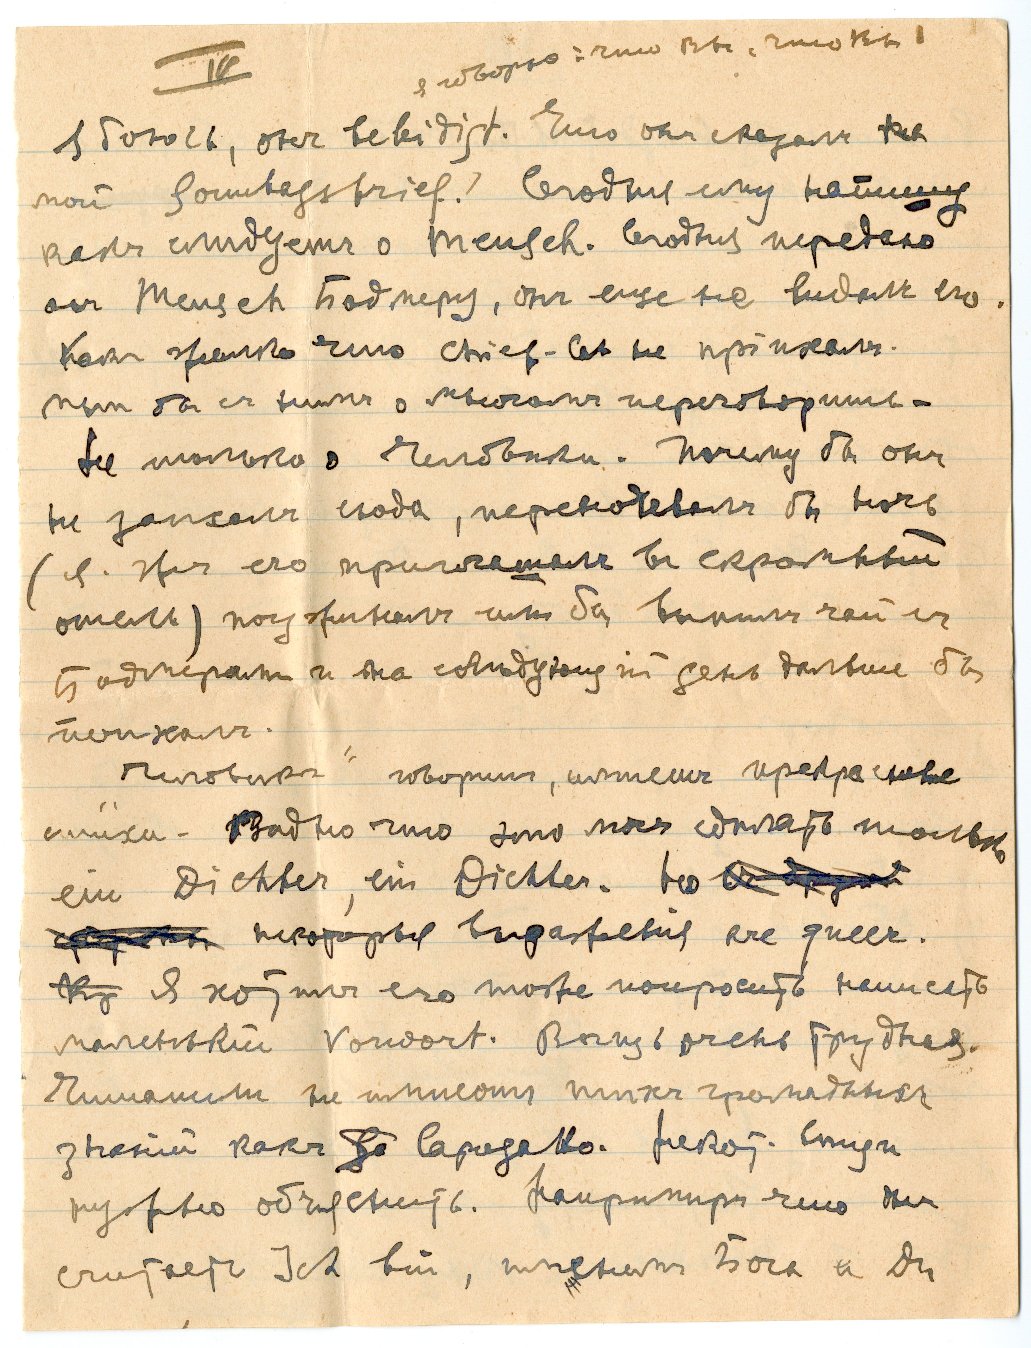 IV
я говорю: что Вы, что Вы!
Я боюсь, онъ beleidigt. Что онъ сказалъ на
мой Sonntagsbrief? Сегодня ему напишу
какъ слѣдуетъ о Mensch. Сегодня передаю
Mensch Бодмеру, онъ еще не видалъ его.
Какъ жалко что chief не пріѣхалъ.
бы съ нимъ о многомъ переговорить –
не только о Человѣкѣ. Почему бы онъ
не заѣхалъ сюда, переночевалъ бы ночь
(я же его приглашалъ въ скромный
отель) поужиналъ бы выпилъ чай съ
Бодмеромъ и на слѣдующій день дальше бы
поѣхалъ.
Человѣкъ" говоритъ, прекрасные
стихи – Видно что это могъ сдѣлать только
ein Dichter, ein Dichter. Но
некоторыя выраженія are queer.
Я хотѣлъ его тоже попросить написать
маленькій Vorwort. Вещь очень трудная.
Читатели не имѣютъ такихъ громадныхъ
знаній какъ Некот. вещи
нужно объяснить. Напримѣръ что онъ
считаетъ Ich bin, именемъ Бога и Du